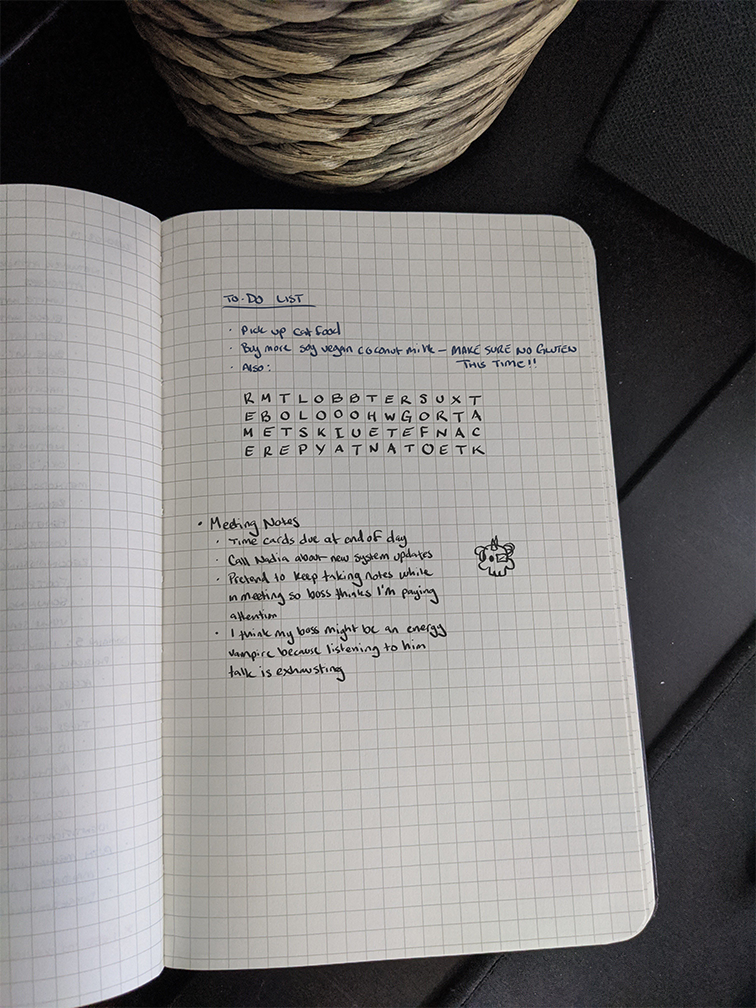 TO-DO LIST
· Pick up cat food
· Buy more soy vegan coconut milk – MAKE SURE NO GLUTEN
THIS TIME!!
· Also:
R M T L O B B T E R S U X T
E B O L O O O H W G O R T A
M E T S K I U E T E F N A C
E R E P Y A T N A T O E T K
• Meeting Notes
· Time cards due at end of day
· Call Nadia about new system updates
· Pretend to keep taking notes while
in meeting so boss thinks I'm paying
attention
· I think my boss might be an energy
vampire because listening to him
talk is exhausting